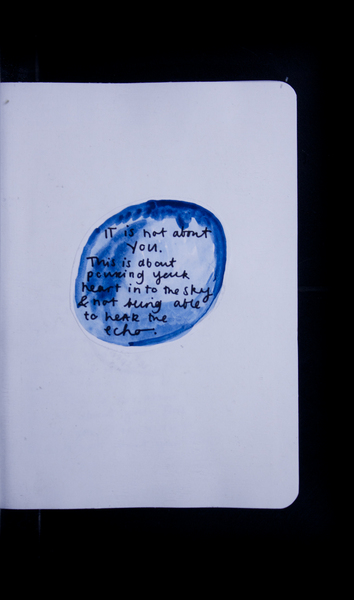 IT is not about
YOU.
This is about
pouring your
heart in to the sky
& not being able
to heAR the
echo.